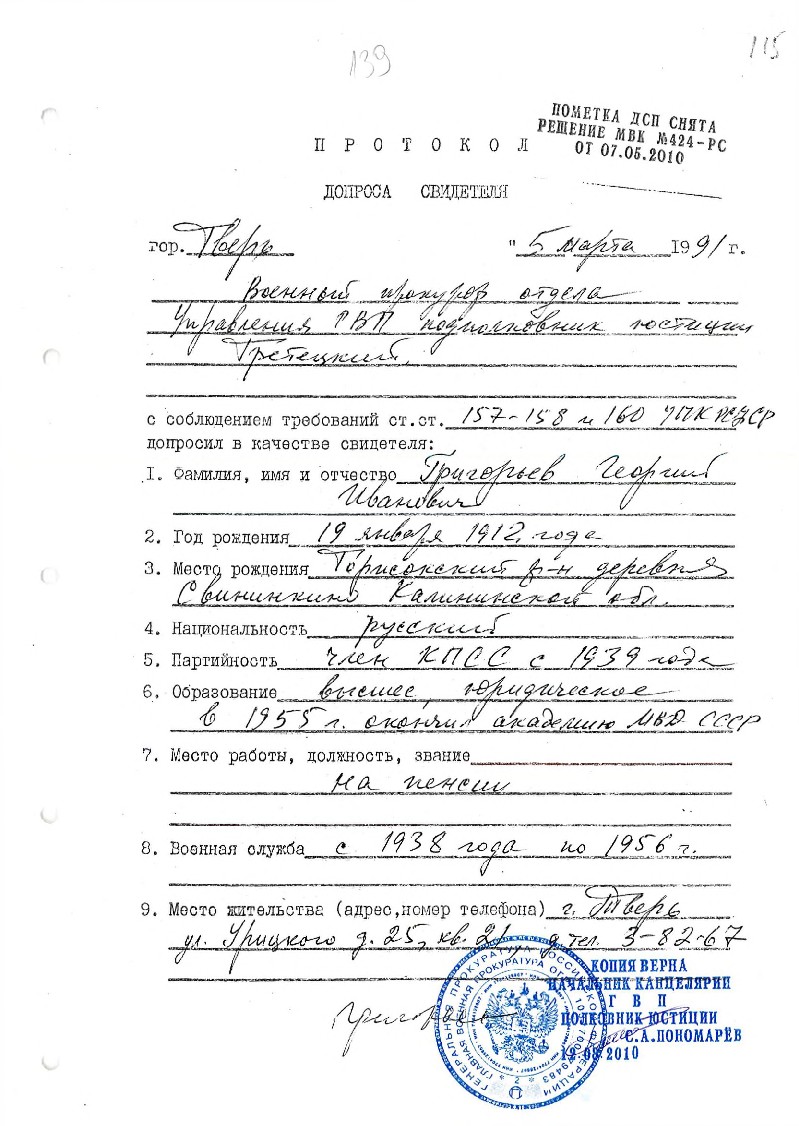 139
115
ПОМЕТКА ДСП СНЯТА
РЕШЕНИЕ МВК №424-РС
ОТ 07.05.2010
П Р О Т О К О Л
ДОПРОСА СВИДЕТЕЛЯ
гор. Тверь "5 марта 1991 г.
Военный прокурор отдела
Управления ГВП подполковник юстиции
Третецкий
с соблюдением требований ст.ст. 157-158 и 160 УПК РСФСР
допросил в качестве свидетеля:
1. Фамилия, имя и отчество Григорьев Георгий
Иванович
2. Год рождения 19 января 1912 года
3. Место рождения р-н деревня
Свининкино Калининской обл.
4. Национальность русский
5. Партийность член КПСС с 1939 года
6. Образование высшее, юридическое
в 1955 г. окончил академию МВД СССР
7. Место работы, должность, звание
на пенсии
8. Военная служба с 1938 года по 1956 г.
9. Место жительства (адрес,номер телефона) г. Тверь
ул. Урицкого д. 25, кв. 21, тел. 3-82-67
КОПИЯ ВЕРНА
НАЧАЛЬНИК КАНЦЕЛЯРИИ
Г В П
ПОЛКОВНИК ЮСТИЦИИ
С.А.ПОНОМАРЁВ
2010
ГЕНЕРАЛЬНАЯ ПРОКУРАТУРА РОССИЙСКОЙ ФЕДЕРАЦИИ
ГЛАВНАЯ ВОЕННАЯ ПРОКУРАТУРА